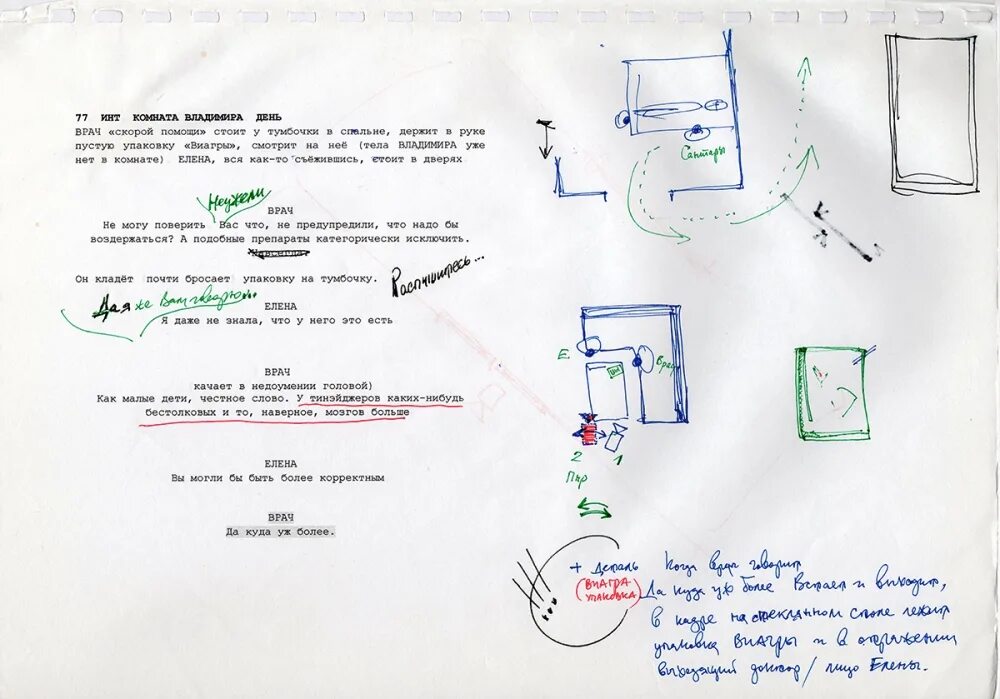 77 ИНТ КОМНАТА ВЛАДИМИРА ДЕНЬ
ВРАЧ «скорой помощи» стоит у тумбочки в спальне, держит в руке
пустую упаковку «Виагры», смотрит на неё (тела ВЛАДИМИРА уже
нет в комнате) ЕЛЕНА, вся как-то съёжившись, стоит в дверях
Неужели
ВРАЧ
Не могу поверить Вас что, не предупредили, что надо бы
воздержаться? А подобные препараты категорически исключить.
Он кладёт почти бросает упаковку на тумбочку.
Распишитесь...
Да я же Вам говорю...
ЕЛЕНА
Я даже не знала, что у него это есть
ВРАЧ
качает в недоумении головой)
Как малые дети, честное слово. У тинэйджеров каких-нибудь
бестолковых и то, наверное, мозгов больше
ЕЛЕНА
Вы могли бы быть более корректным
ВРАЧ
Да куда уж более.
Санитары
Е.
Врач
2
1
Пнр
+ деталь
(ВИАГРА
УПАКОВКА)
Когда врач говорит
Да куда уж более Встает и выходит,
в кадре на стеклянном столе лежит
упаковка ВИАГРЫ и в отражении
выходящий доктор / лицо Елены.